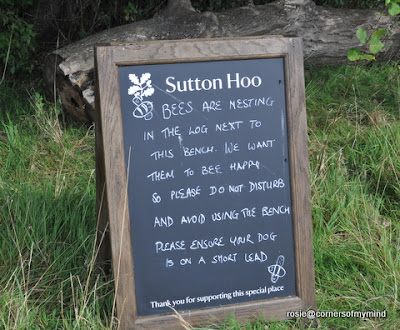 Sutton Hoo
BEES ARE NESTING
IN THE LOG NEXT TO
THIS BENCH. WE WANT
THEM TO BEE HAPPY
SO PLEASE DO NOT DISTURB
AND AVOID USING THE BENCH
PLEASE ENSURE YOUR DOG
IS ON A SHORT LEAD
Thank you for supporting this special place
rosie@cornersofmymind